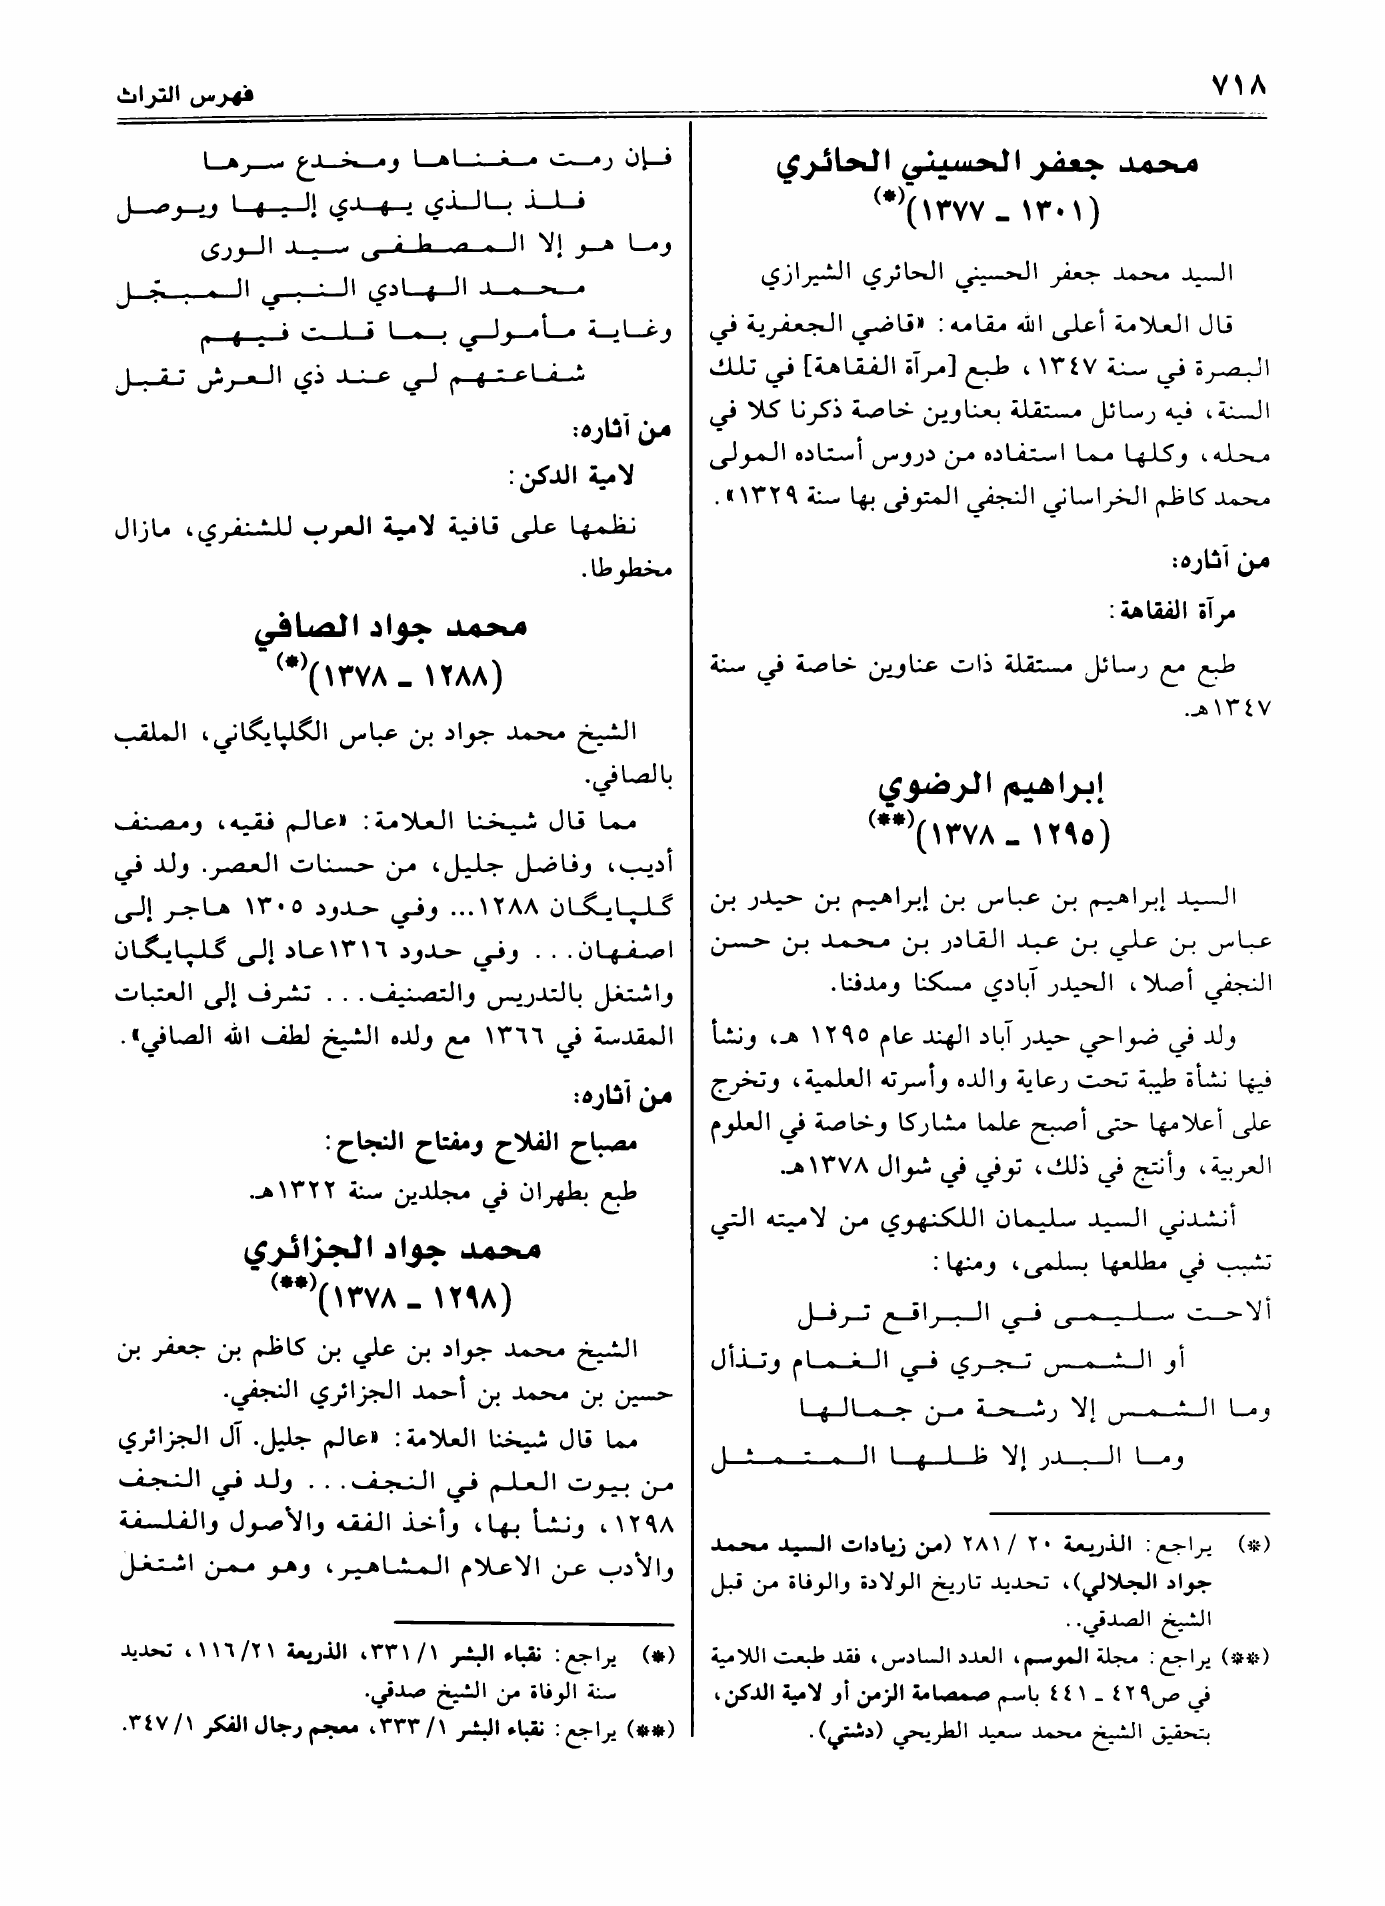 ٧١٨
فهرس التراث
محمد جعفر الحسيني الحائري
(١٣٠١ ـ ١٣٧٧)(*)
السيد محمد جعفر الحسيني الحائري الشيرازي
قال العلامة أعلى الله مقامه: «قاضي الجعفرية في
البصرة في سنة ١٣٤٧، طبع [مرآة الفقاهة] في تلك
السنة، فيه رسائل مستقلة بعناوين خاصة ذكرنا كلا في
محله، وكلها مما استفاده من دروس أستاده المولى
محمد كاظم الخراساني النجفي المتوفى بها سنة ١٣٢٩».
من آثاره:
مرآة الفقاهة:
طبع مع رسائل مستقلة ذات عناوين خاصة في سنة
١٣٤٧هـ.
إبراهيم الرضوي
(١٢٩٥ ـ ١٣٧٨)(**)
السيد إبراهيم بن عباس بن إبراهيم بن حيدر بن
عباس بن علي بن عبد القادر بن محمد بن حسن
النجفي أصلا، الحيدر آبادي مسكنا ومدفنا.
ولد في ضواحي حيدر آباد الهند عام ١٢٩٥ هـ، ونشأ
فيها نشأة طيبة تحت رعاية والده وأسرته العلمية، وتخرج
على أعلامها حتى أصبح علما مشاركا وخاصة في العلوم
العربية، وأنتج في ذلك، توفي في شوال ١٣٧٨هـ.
أنشدني السيد سليمان اللكنهوي من لاميته التي
تشبب في مطلعها بسلمى، ومنها:
ألاحت سليمى في البراقع ترفل
أو الشمس تجري في الغمام وتذأل
وما الشمس إلا رشحة من جمالها
وما البدر إلا ظلها المتمثل
(*) يراجع: الذريعة ٢٠ / ٢٨١ (من زيادات السيد محمد
جواد الجلالي)، تحديد تاريخ الولادة والوفاة من قبل
الشيخ الصدقي..
(**) يراجع: مجلة الموسم، العدد السادس، فقد طبعت اللامية
في ص٤٢٩ ـ ٤٤١ باسم صمصامة الزمن أو لامية الدكن،
بتحقيق الشيخ محمد سعيد الطريحي (دشتي).
فإن رمت مغناها ومخدع سرها
فلذ بالذي يهدي إليها ويوصل
وما هو إلا المصطفى سيد الورى
محمد الهادي النبي المبجّل
وغاية مأمولي بما قلت فيهم
شفاعتهم لي عند ذي العرش تقبل
من آثاره:
لامية الدكن:
نظمها على قافية لامية العرب للشنفري، مازال
مخطوطا.
محمد جواد الصافي
(١٢٨٨ ـ ١٣٧٨)(*)
الشيخ محمد جواد بن عباس الگلپايگاني، الملقب
بالصافي.
مما قال شيخنا العلامة: «عالم فقيه، ومصنف
أديب، وفاضل جليل، من حسنات العصر. ولد في
گلپايگان ١٢٨٨... وفي حدود ١٣٠٥ هاجر إلى
اصفهان... وفي حدود ١٣١٦عاد إلى گلپايگان
واشتغل بالتدريس والتصنيف... تشرف إلى العتبات
المقدسة في ١٣٦٦ مع ولده الشيخ لطف الله الصافي».
من آثاره:
مصباح الفلاح ومفتاح النجاح:
طبع بطهران في مجلدين سنة ١٣٢٢هـ.
محمد جواد الجزائري
(١٢٩٨ ـ ١٣٧٨)(**)
الشيخ محمد جواد بن علي بن كاظم بن جعفر بن
حسين بن محمد بن أحمد الجزائري النجفي.
مما قال شيخنا العلامة: «عالم جليل. آل الجزائري
من بيوت العلم في النجف... ولد في النجف
١٢٩٨، ونشأ بها، وأخذ الفقه والأصول والفلسفة
والأدب عن الاعلام المشاهير، وهو ممن اشتغل
(*) يراجع: نقباء البشر ١/ ٣٣١، الذريعة ٢١/ ١١٦، تحديد
سنة الوفاة من الشيخ صدقي.
(**) يراجع: نقباء البشر ١/ ٣٣٣، معجم رجال الفكر ١/ ٣٤٧.